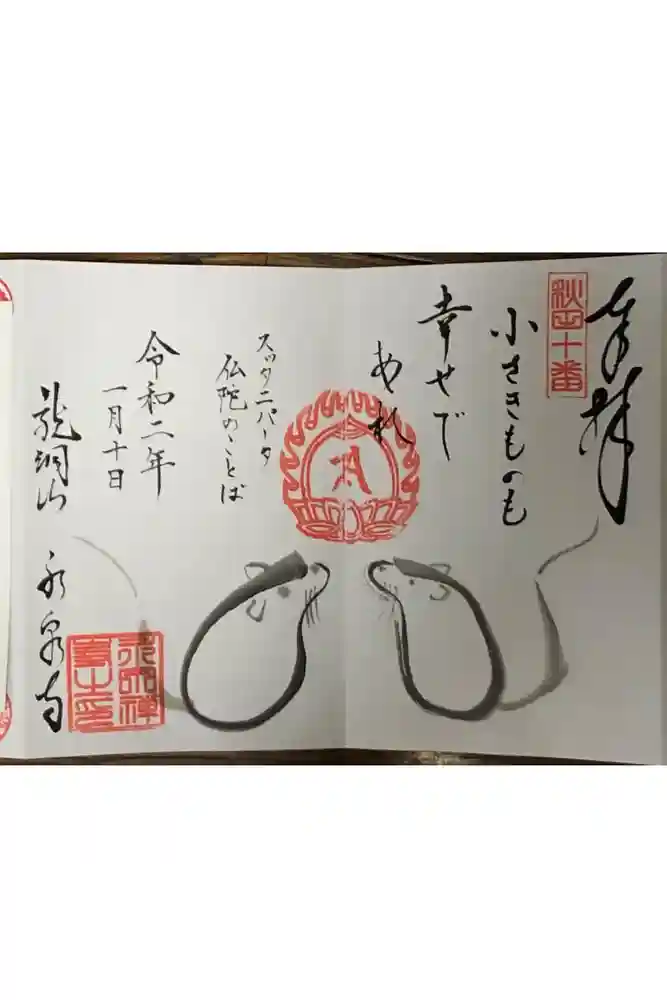 奉拝
秋田十番
小さきものも
幸せで
あれ
スッタニパータ
仏陀のことば
令和二年
一月十日
龍洞山 永泉寺